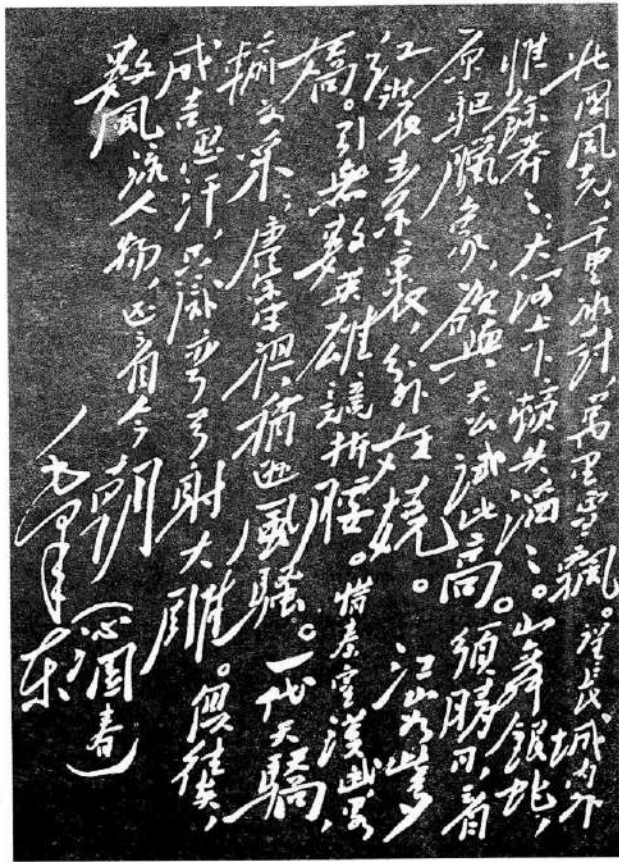 北國風光，千里冰封，萬里雪飄。望長城内外
惟餘莽々；大河上下，頓失滔々。山舞銀蛇，
原驱臘象，欲與天公試比高。須晴日，看
红裝素裹，分外妖嬈。江山如此多
嬌。引無數英雄競折腰。惜秦皇漢武，畧
輸文采；唐宗宋祖，稍遜風騷。一代天驕，
成吉思汗，只識彎弓射大雕。俱往矣，
數風流人物，还看今朝（沁園春）
毛澤東